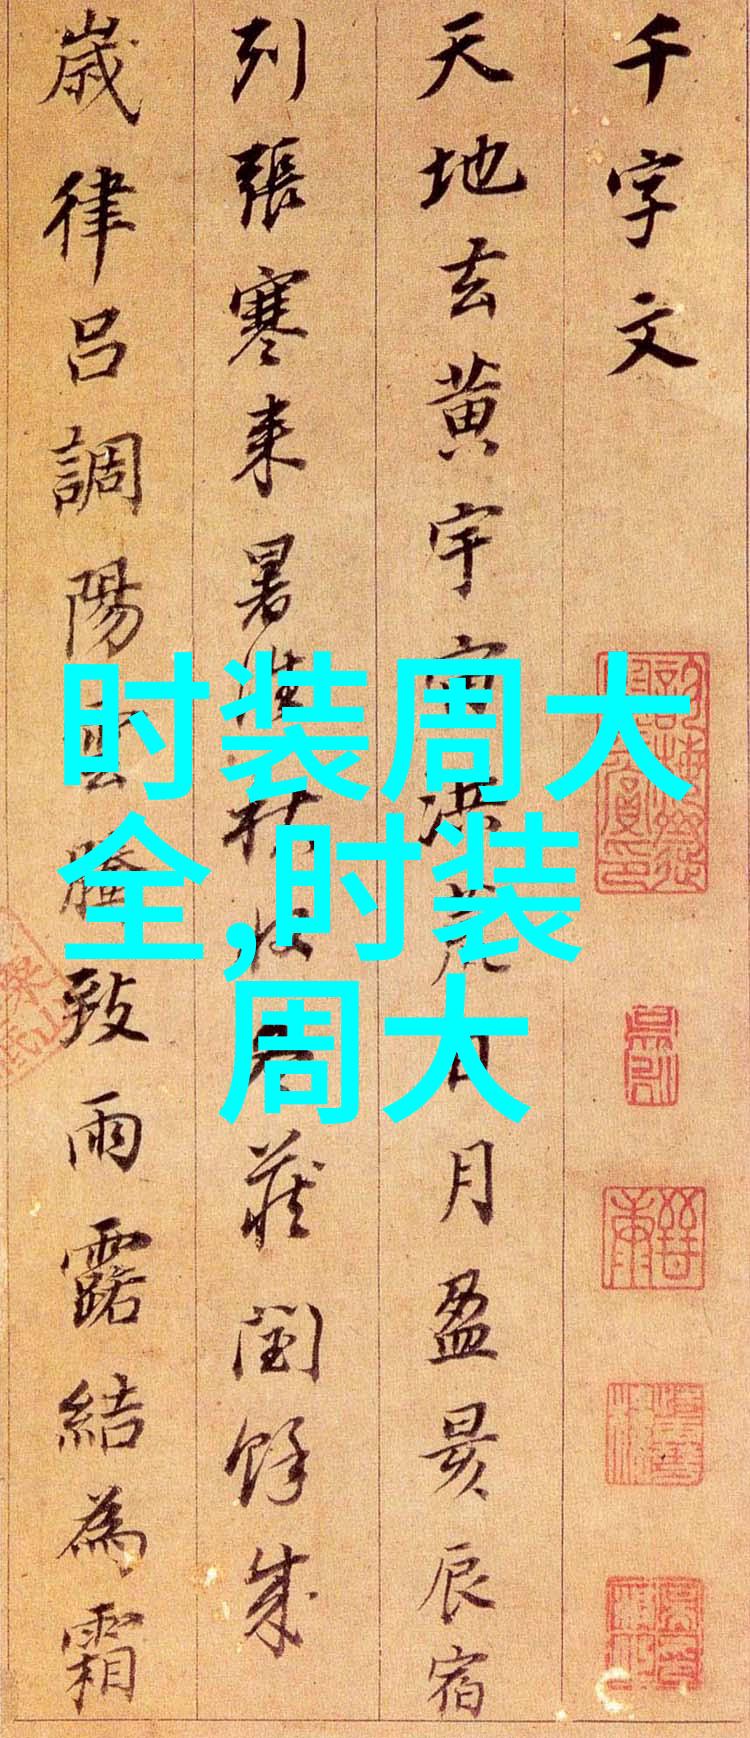 千字文
天地玄黄宇宙洪荒日月盈昃辰宿
列張寒来暑往秋收冬蔵閏餘成
歳律吕調陽雲騰致雨露結為霜
时装周大
全,时装
周大